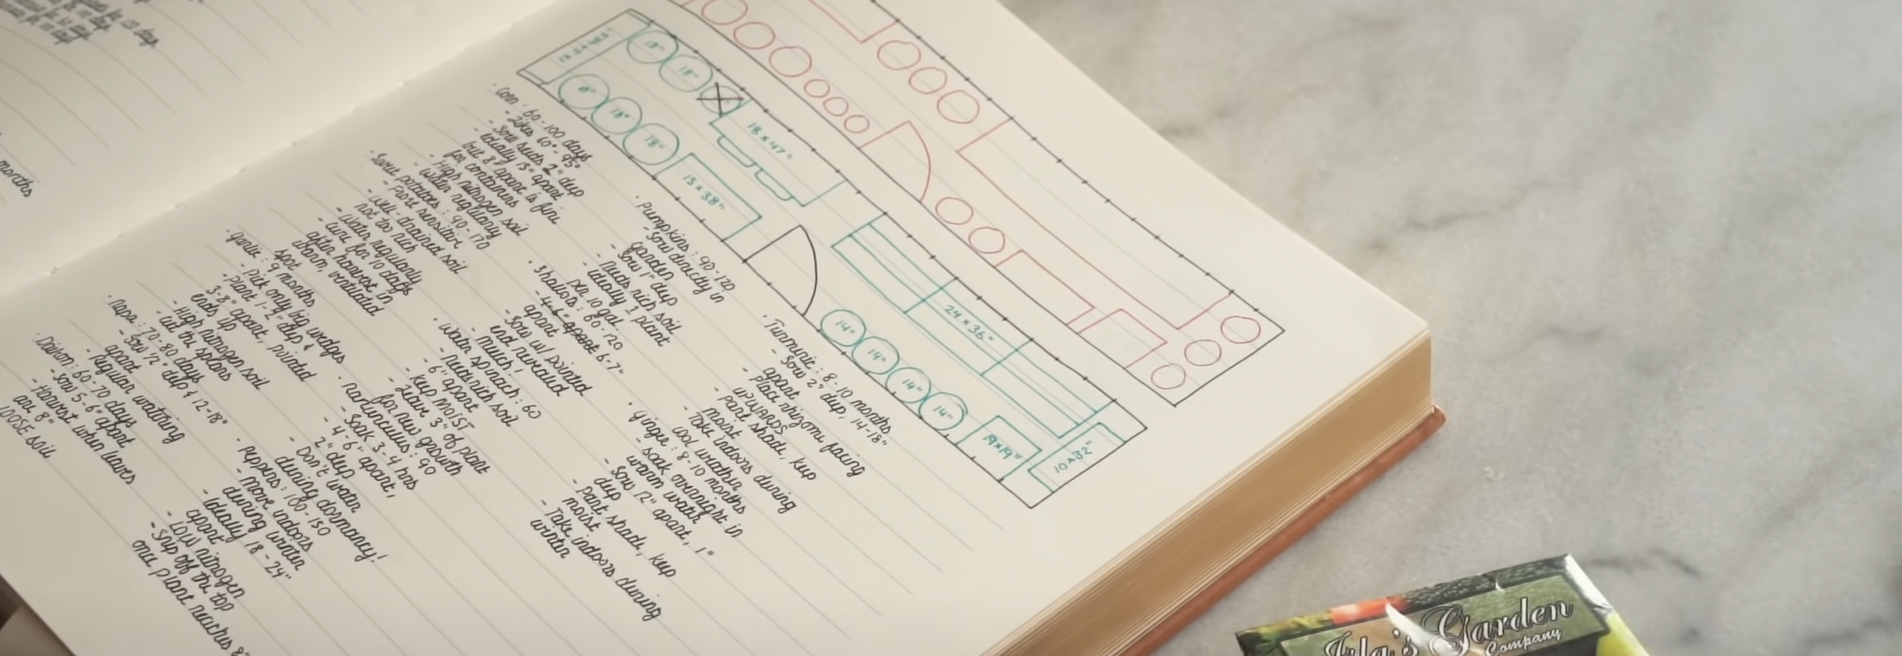 months
· Corn: 60-100 days
- Likes 60°-95°
- Sow seeds 2" deep
ideally 15" apart
but 8" apart is fine
for containers
- High nitrogen soil
- Water regularly
· Sweet potatoes: 90-170
- Frost sensitive
- Well-drained soil
not too rich
- Water regularly
- Cure for 10 days
after harvest in
warm, ventilated
spot
· Garlic: 9 months
- Pick only big wedges
- Plant 1-2" deep &
3-8" apart, pointed
ends up
- High nitrogen soil
- Cut the scapes
· Napa: 70-80 days
- Sow 1/2" deep & 12-18"
apart
- Regular watering
· Daikon: 60-70 days
- Sow 5-6" apart
- Harvest when leaves
are 8"
LOOSE soil
· Pumpkins: 90-120
- Sow directly in
garden
- Sow 1" deep
- Needs rich soil
- Ideally 1 plant
per 10 gal
· Shallots: 60-120
- 4-6" apart 6-7"
apart
- Sow w/ pointed
end revealed
- Mulch
· Water spinach: 60
- Needs rich soil
- 6" apart
- Keep MOIST
- Leave 3" of plant
for new growth
· Ranunculus: 90
- Soak 3-4 hrs
- 4-6" apart,
2" deep
- Don't water
during dormancy!
· Peppers: 100-150
- Move indoors
during winter
- Ideally 18-24"
apart
- LOW nitrogen
- Snip off the top
once plant reaches 8"
· Turmeric: 8-10 months
- Sow 2" deep, 14-18"
apart
- Place rhizome facing
UPWARDS
- Part shade, keep
moist
- Take indoors during
cool weather
· Ginger: 8-10 months
- Soak overnight in
warm water
- Sow 12" apart, 1"
deep
- Part shade, keep
moist
- Take indoors during
winter
18"
18"
18"
18"
18 x 47"
15 x 38"
24 x 36"
14"
14"
14"
14"
19 x 19"
10 x 32"
Isla's Garden
Company